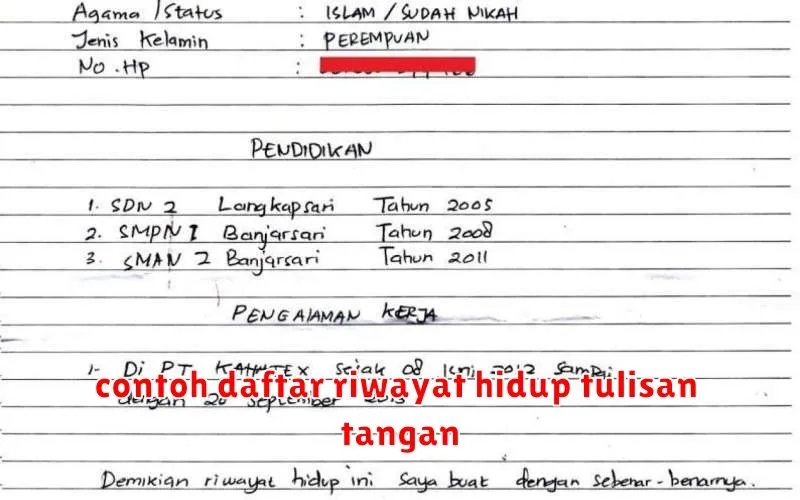 Agama / Status : ISLAM / SUDAH NIKAH
Jenis Kelamin : PEREMPUAN
No. HP :
PENDIDIKAN
1. SDN 2 Langkapsari Tahun 2005
2. SMPN 1 Banjarsari Tahun 2008
3. SMAN 2 Banjarsari Tahun 2011
PENGALAMAN KERJA
1- Di PT KAHATEX Sejak 08 Juni 2012 Sampai
dengan 20 September 2013
contoh daftar riwayat hidup tulisan
tangan
Demikian riwayat hidup ini saya buat dengan sebenar-benarnya.